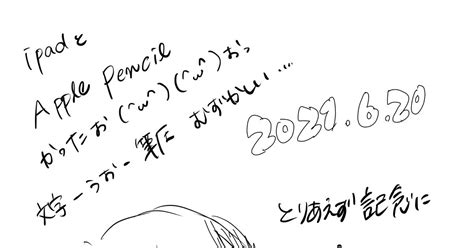 ipadと
Apple Pencil
かったお(^ω^)(^ω^)おっ
文字ーうおー筆圧 むずかしい...
2021.6.20
とりあえず記念に